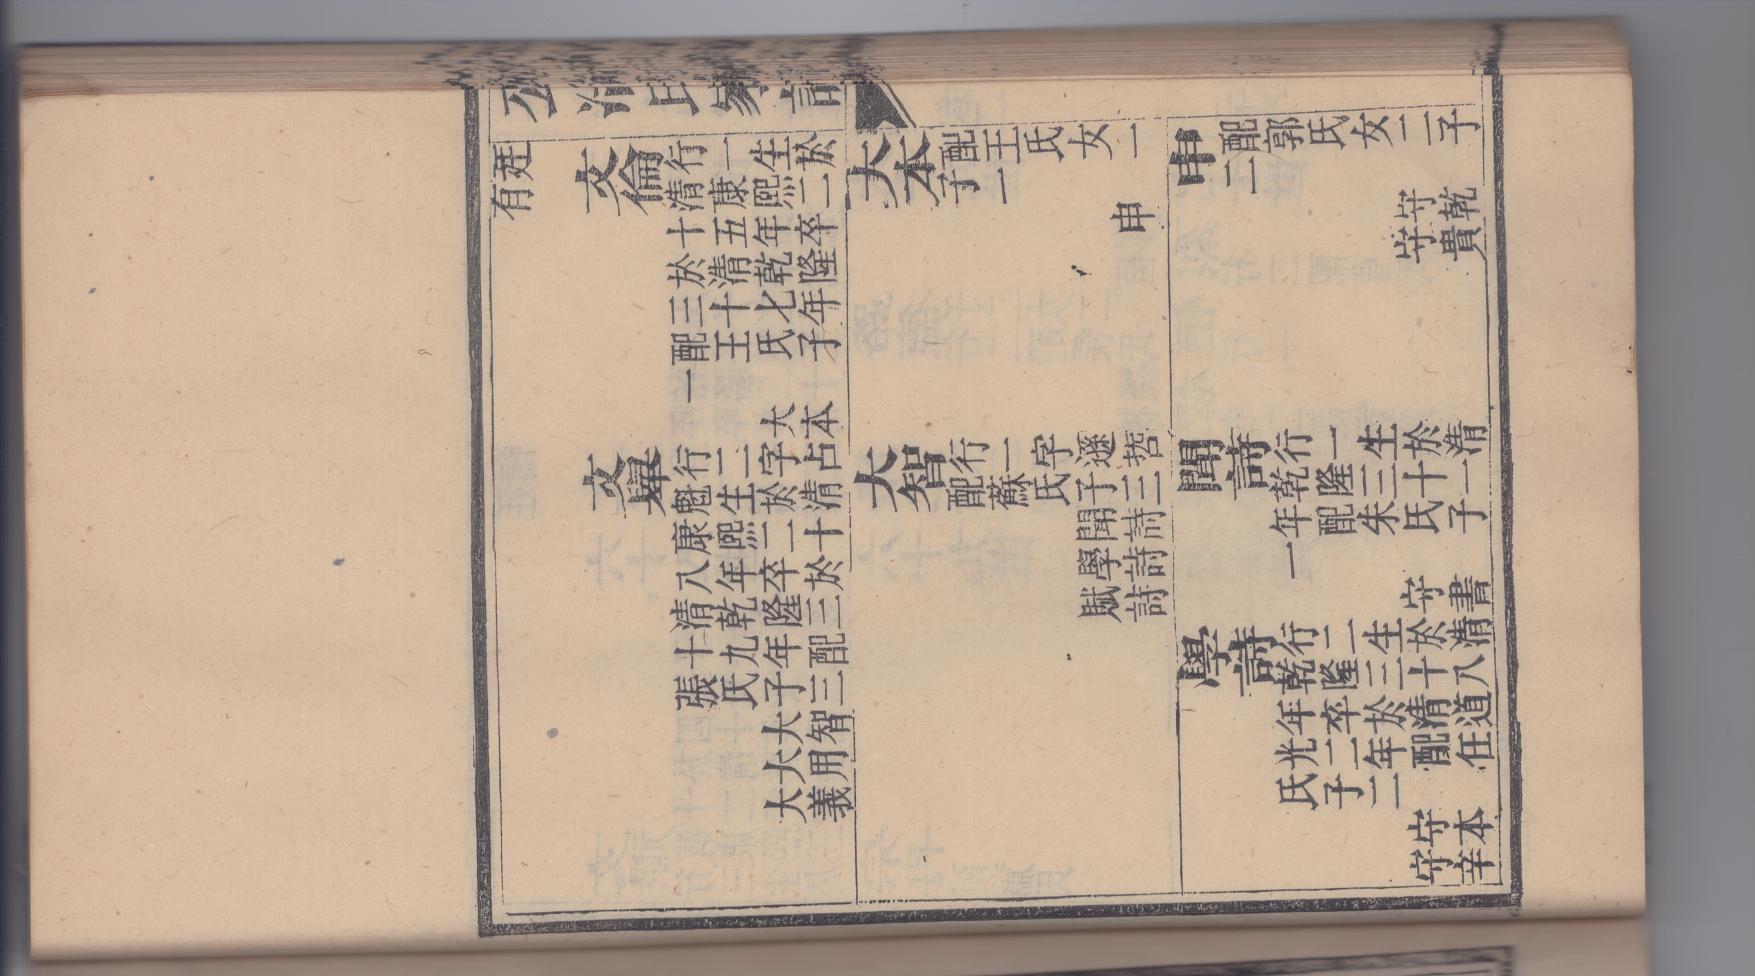 公冶氏家譜
廷有
文倫
行一生於
清康熙二
十五年卒
於清乾隆
三十七年
配王氏子
一
大本
文舉
行二字占
魁生於清
康熙二十
八年卒於
清乾隆三
十九年配
張氏子三
大智
大用
大義
大本
配王氏女一
子一
申
大智
行一字遜哲
配蘇氏子三
聞詩
學詩
賦詩
申
配郭氏女二子
二
守乾
守貴
聞詩
行一生於清
乾隆三十一
年配朱氏子
一
守書
學詩
行二生於清
乾隆三十八
年卒於清道
光二年配任
氏子二
守本
守